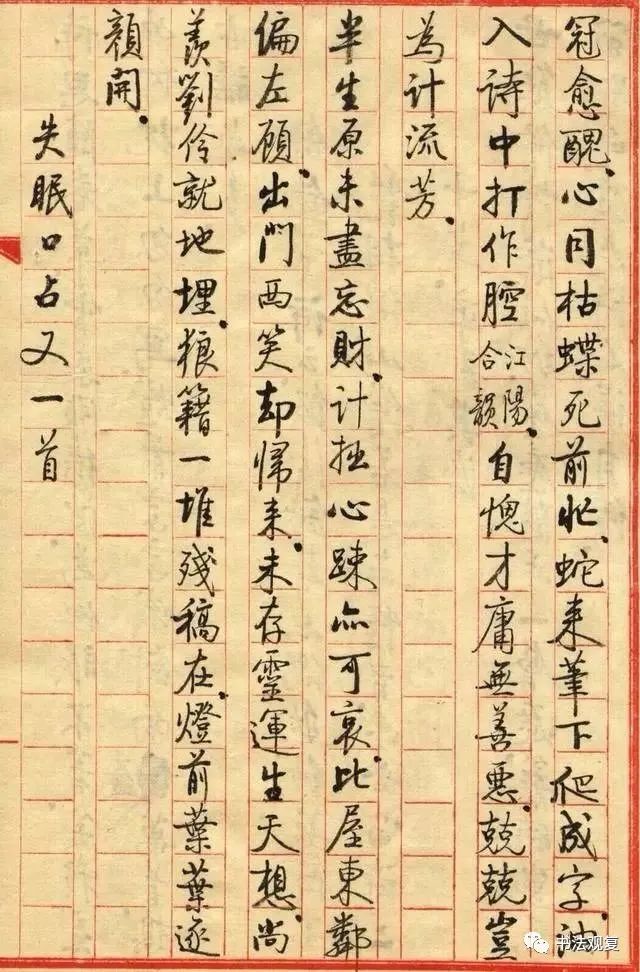 冠愈醜。心同枯蝶死前忙。蛇来筆下爬成字。油
入詩中打作腔江陽合韻。自愧才庸無善惡。兢兢豈
為計流芳。
半生原未盡忘財。計拙心踈亦可哀。比屋東鄰
偏左顧。出門西笑却歸来。未存靈運生天想。尚
羨劉伶就地埋。狼籍一堆殘稿在。燈前葉葉逐
顏開。
失眠口占又一首
书法观复